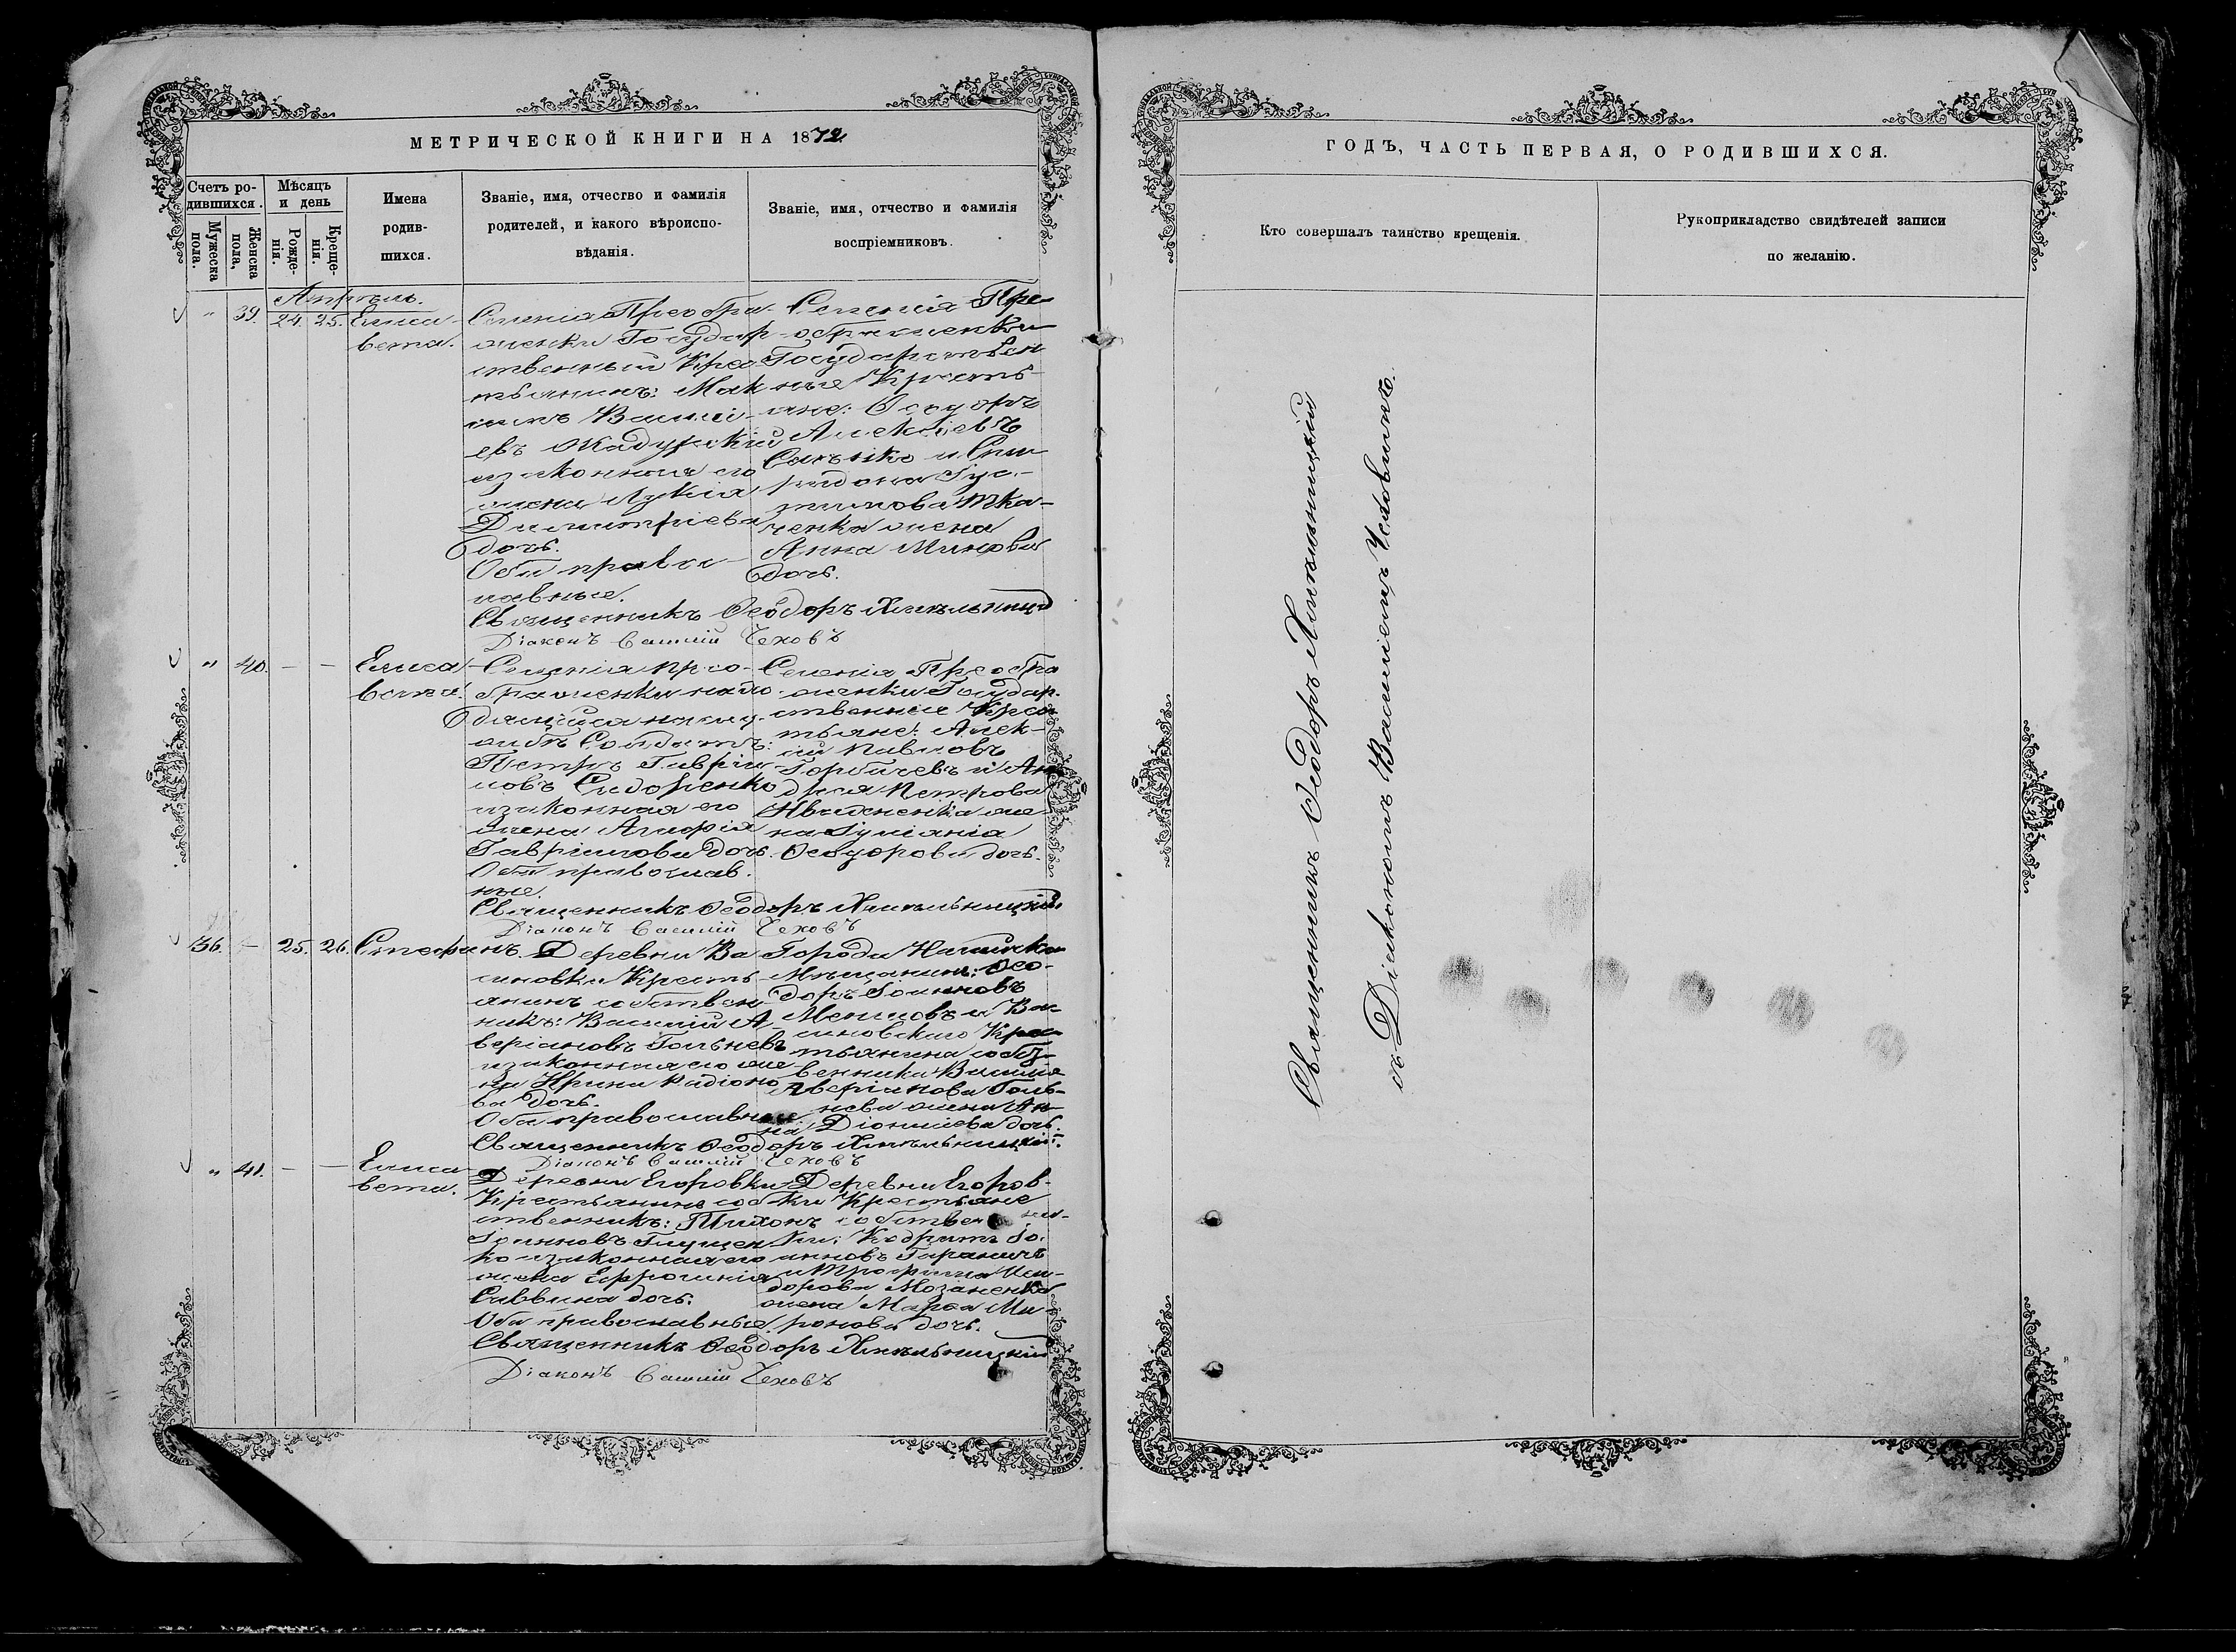 МЕТРИЧЕСКОЙ КНИГИ НА 1872
Счетъ ро-
дившихся.
Мужеска
пола.
Женска
пола,
Мѣсяцъ
и день
Рожде-
нія.
Креще-
нія.
Имена
родив-
шихся.
Званіе, имя, отчество и фамилія
родителей, и какого вѣроиспо-
вѣданія.
Званіе, имя, отчество и фамилія
воспріемниковъ.
Апрѣль.
" 39. 24. 25. Елиса-
вета.
Селенія Преобра-
женки Государ-
ственный Крес-
тьянинъ: Мак-
симъ Васильевъ
и законная его
жена Лукія
Димитріева
дочь.
Оба православ-
ные.
Селенія Пре-
ображенки
Государствен
ные Кресть-
яне: Ѳеодоръ
Алексіевъ
жена
Анна
дочь.
Священникъ Ѳеодоръ Хмельницкій
Діаконъ Василій Чеховъ
" 40. — — Елиса-
вета.
Селенія Прео-
браженки
Петръ Гаврі-
ловъ Сидоренко
и законная его
жена
Гавріилова дочь.
Оба православ-
ные.
Селенія Преобра
женки Государ-
ственные Крес
тьяне: Алек-
сій Павловъ
Петрова
Іуліанія
Ѳеодорова дочь.
Священникъ Ѳеодоръ Хмельницкій.
Діаконъ Василій Чеховъ
36. — 25. 26. Стефанъ.
Деревни Ва
силовки Кресть-
янинъ собствен-
никъ: Василій А-
веріановъ Гольневъ
и законная его же-
на Ирина Радіоно
ва дочь.
Оба православные.
Города
Мѣщанинъ: Ѳео-
доръ Іоанновъ
венника Василія
Аверіанова Голь-
нева жена Ан-
на Діонисіева дочь.
Священникъ Ѳеодоръ Хмельницкій.
Діаконъ Василій Чеховъ
" 41. — — Елиса-
вета.
Деревни Егоровки
Крестьянинъ соб-
ственникъ: Тихонъ
Іоанновъ Глущен
ко и законная его
жена Евфросинія
Саввина дочь.
Оба православные.
Деревни Егоров-
ки Крестьяне
собственни-
ки: Кодратъ Іо-
анновъ
и Трофима
жена Марѳа Ми-
ронова дочь.
Священникъ Ѳеодоръ Хмельницкій
Діаконъ Василій Чеховъ
ГОДЪ, ЧАСТЬ ПЕРВАЯ, О РОДИВШИХСЯ.
Кто совершалъ таинство крещенія.
Рукоприкладство свидѣтелей записи
по желанію.
Священникъ Ѳеодоръ Хмельницкій
съ Діакономъ Василіемъ Чеховымъ.